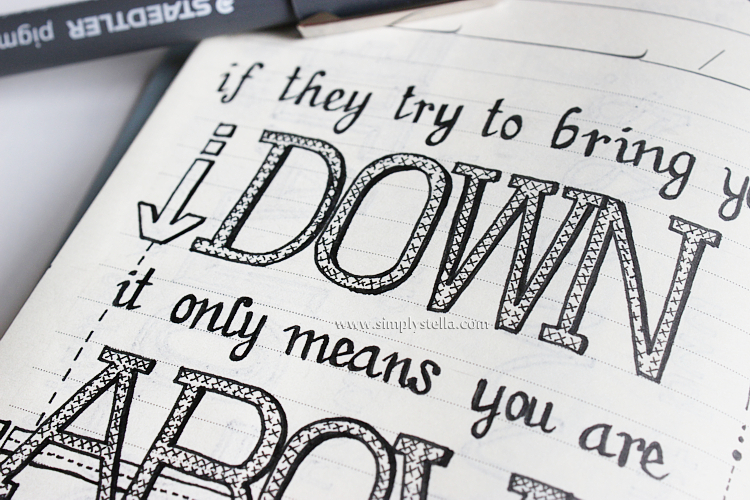 STAEDTLER pigm
if they try to bring yo
DOWN
it only means you are
ABOV
www.simplystella.com